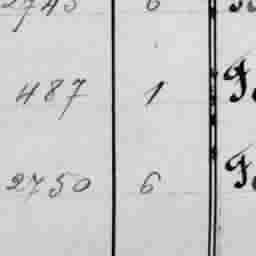 2745 6
487 1
2750 6